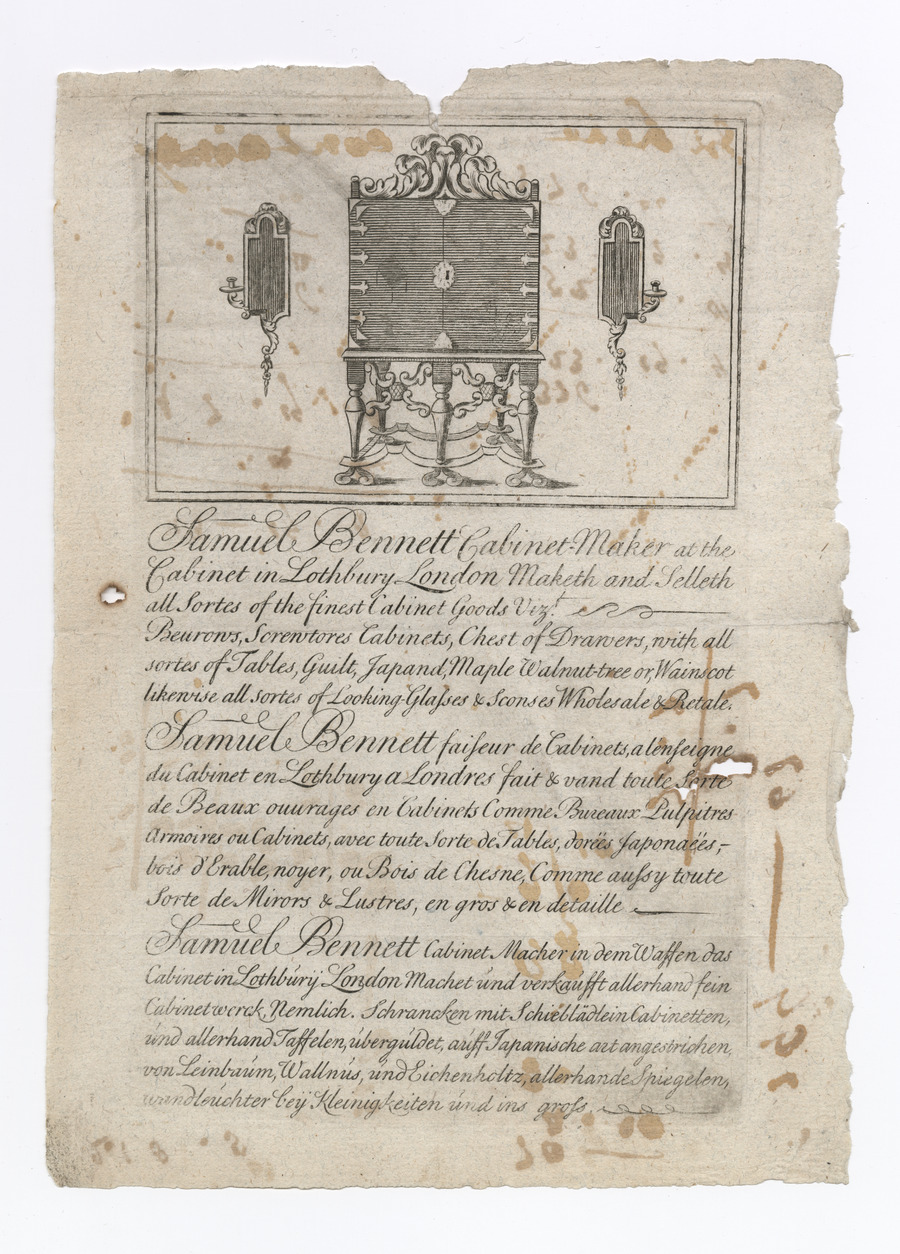 Samuel Bennett Cabinet-Maker at the
Cabinet in Lothbury London Maketh and Selleth
all Sortes of the finest Cabinet Goods Vizt.
Beurows, Screwtores Cabinets, Chest of Drawers, with all
sortes of Tables, Guilt, Japand, Maple Walnut-tree or Wainscot
likewise all sortes of Looking-Glaſses & Sconses Wholesale & Retale.
Samuel Bennett faiſeur de Cabinets, a lenſeigne
du Cabinet en Lothbury a Londres fait & vand toute Sorte
de Beaux ouurages en Cabinets Comme Bureaux Pulpitres
Armoires ou Cabinets, avec toute Sorte de Tables, dorëes Japonaëes,
bois d'Erable, noyer, ou Bois de Chesne, Comme auſsy toute
Sorte de Mirors & Lustres, en gros & en detaille
Samuel Bennett Cabinet Macher in dem Waffen das
Cabinet in Lothbúrÿ London Machet únd verkaúfft allerhand fein
Cabinetwerck, Nemlich. Schrancken mit Schiebladlein Cabinetten,
únd allerhand Taffelen, úbergúldet, aúff Japanische art angestrichen,
von Leinbaúm, Wallnús, únd Eichenholtz, allerhande Spiegelen,
wandleúchter beÿ Kleinigkeiten únd ins groſs.